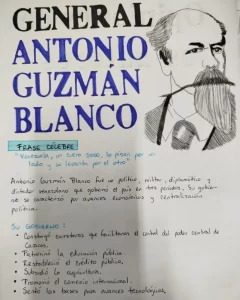 GENERAL
ANTONIO
GUZMÁN
BLANCO
FRASE CÉLEBRE
"Venezuela, un cuero seco, lo pisan por un
lado y se levanta por el otro"
Antonio Guzmán Blanco fue un político, militar, diplomático y
dictador venezolano que gobernó el país en tres períodos. Su gobier-
no se caracterizó por avances económicos y centralización
política.
SU GOBIERNO:
• Construyó carreteras que facilitaron el control del poder central de
Caracas.
• Patrocinó la educación pública.
• Restableció el crédito público.
• Subsidió la agricultura.
• Promovió el comercio internacional.
• Sentó las bases para avances tecnológicos,